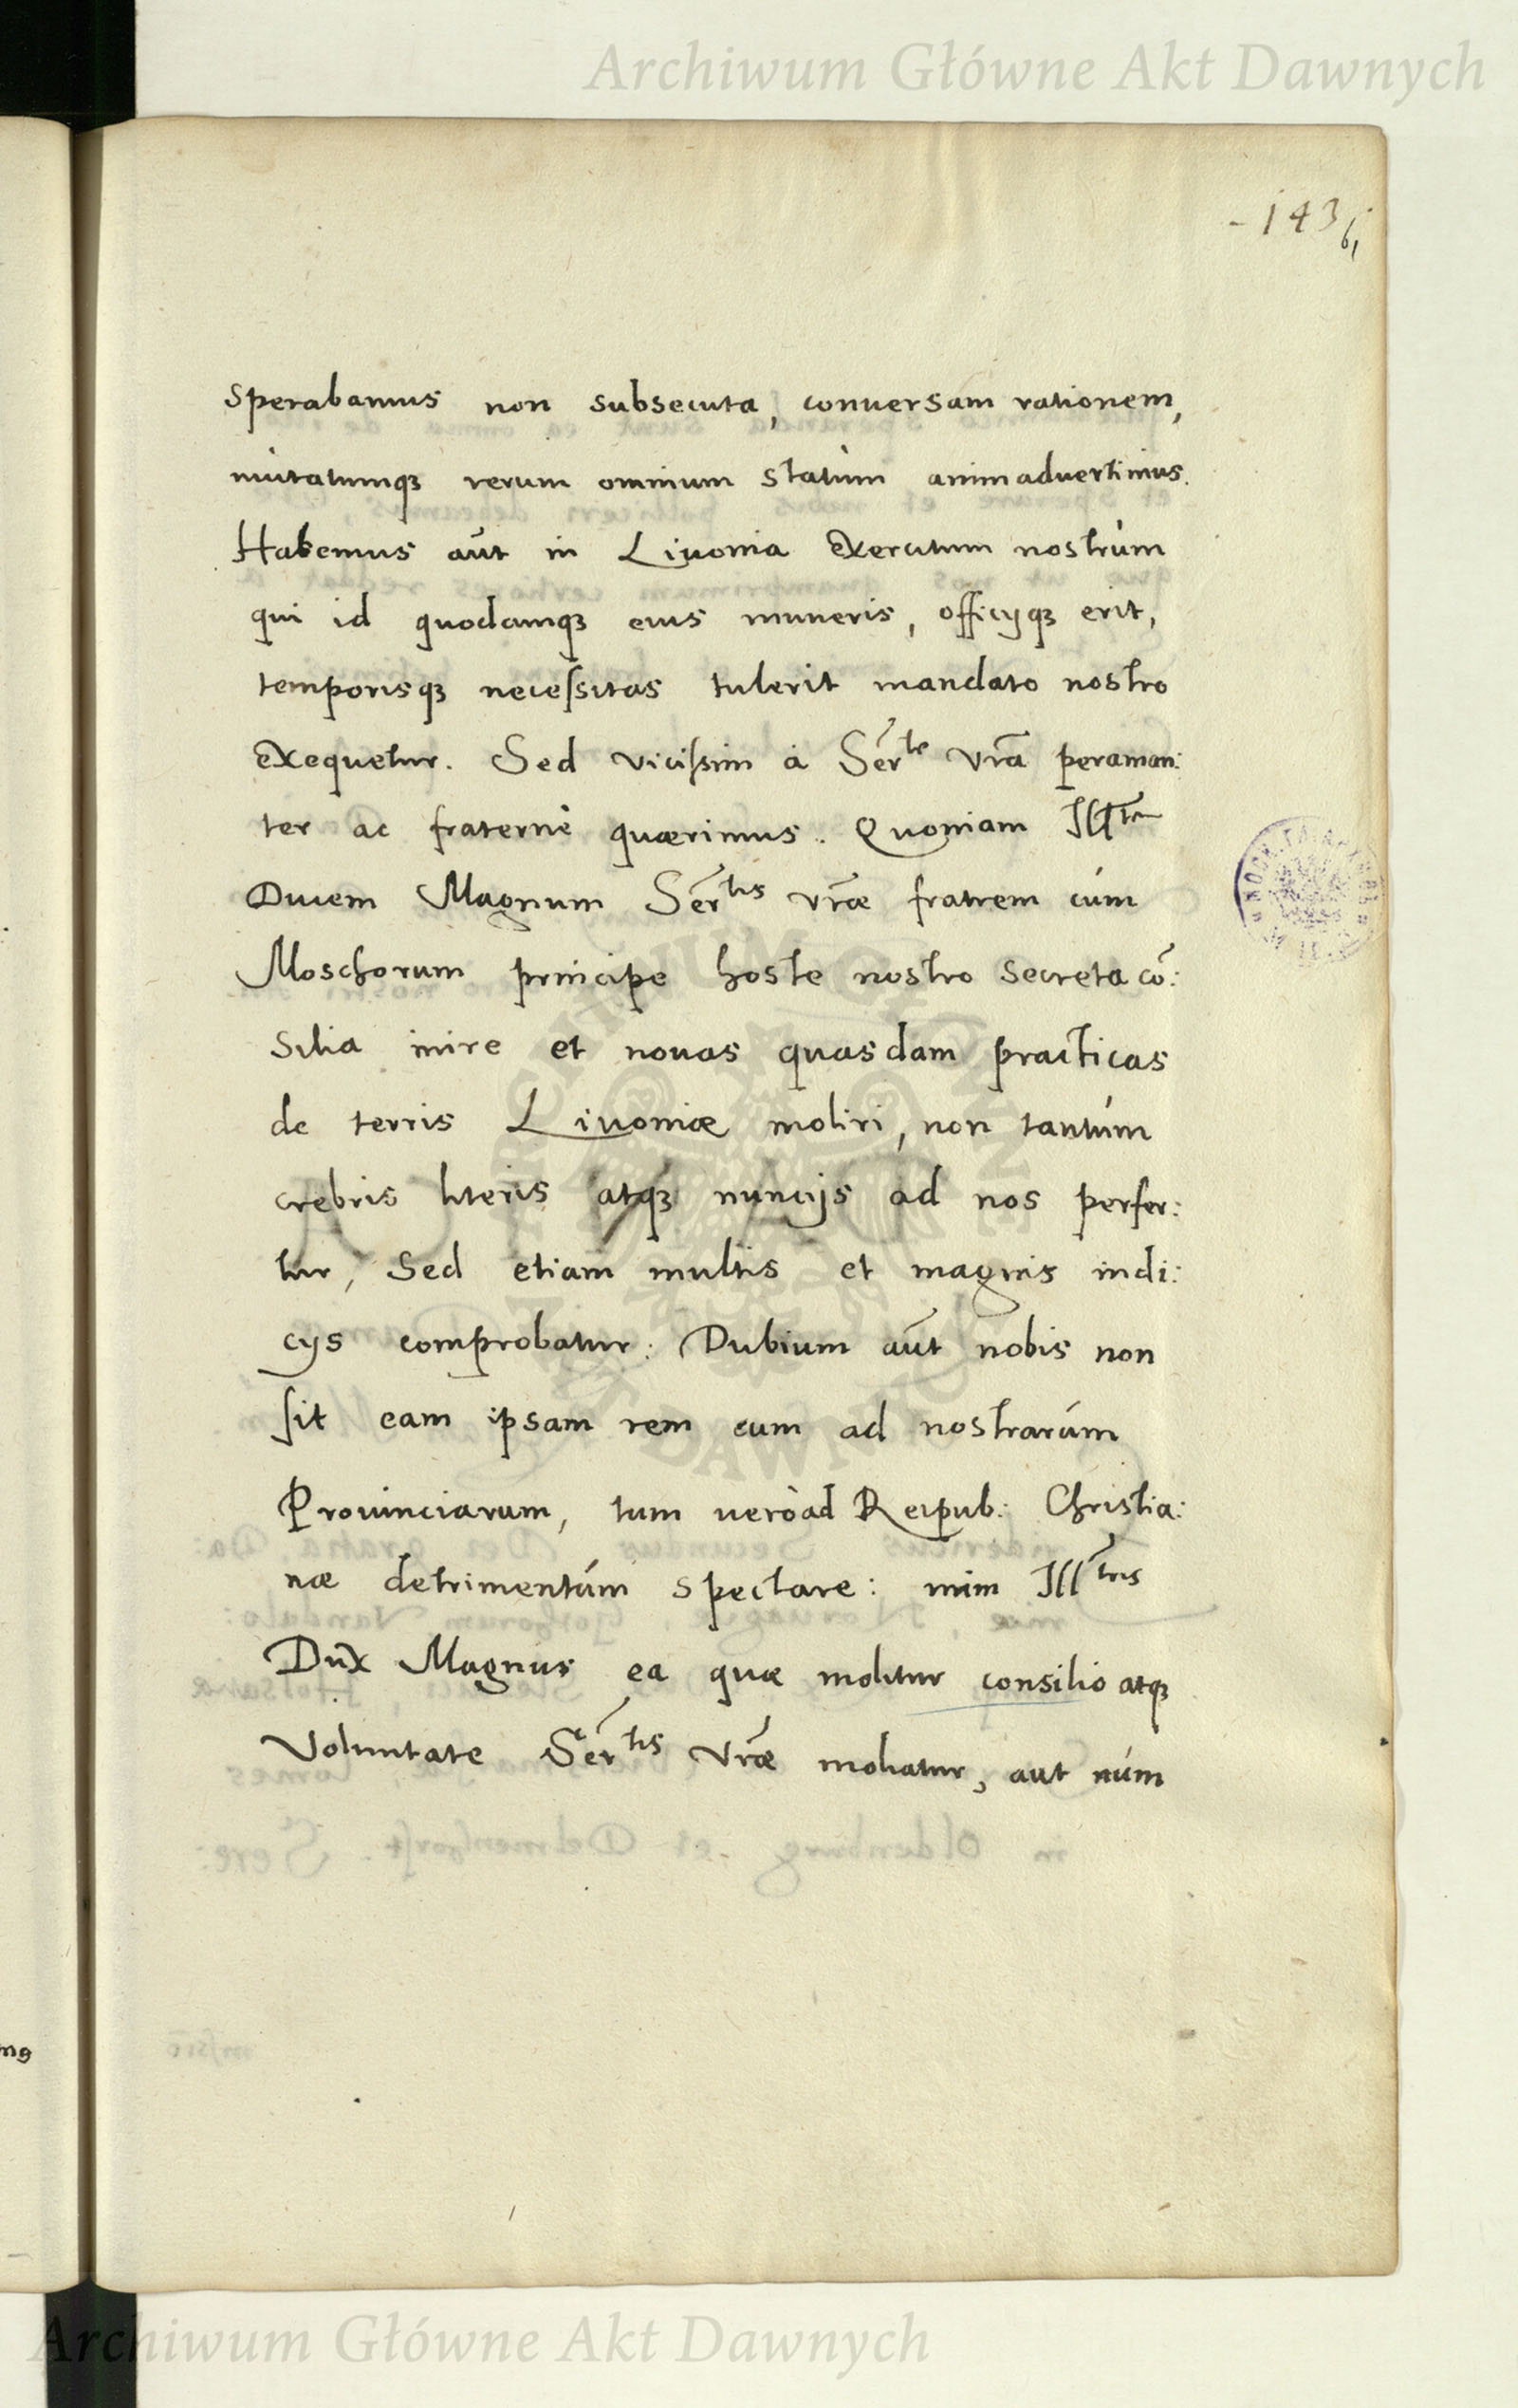 Archiwum Główne Akt Dawnych
- 143
61
sperabamus non subsecuta, conuersam rationem,
mutatumqꝫ rerum omnium statum animaduertimus.
Habemus aut̄ in Liuonia exercitum nostrum
qui id quodcumqꝫ eius muneris, officijqꝫ erit,
temporisqꝫ necessitas tulerit mandato nostro
exequetur. Sed vicissim à Ser̄te vr̄a peraman:
ter ac fraternè quærimus. Quoniam Illtrem
Ducem Magnum Ser̄tis vr̄æ fratrem cùm
Moschorum principe hoste nostro secreta cō:
silia inire et nouas quasdam practicas
de terris Liuoniæ moliri, non tantùm
crebris literis atqꝫ nuncijs ad nos perfer:
tur, sed etiam multis et magnis indi:
cijs comprobatur: Dubium aut̄ nobis non
sit eam ipsam rem cum ad nostrarùm
Prouinciarum, tum verò ad Reipub: Christia:
næ detrimentùm spectare: num Illtris
Dux Magnus ea quæ molitur consilio atqꝫ
Voluntate Ser̄tis vr̄æ moliatur, aut nùm
ARCHIWUM GŁÓWNE
AKT DAWNYCH
Archiwum Główne Akt Dawnych